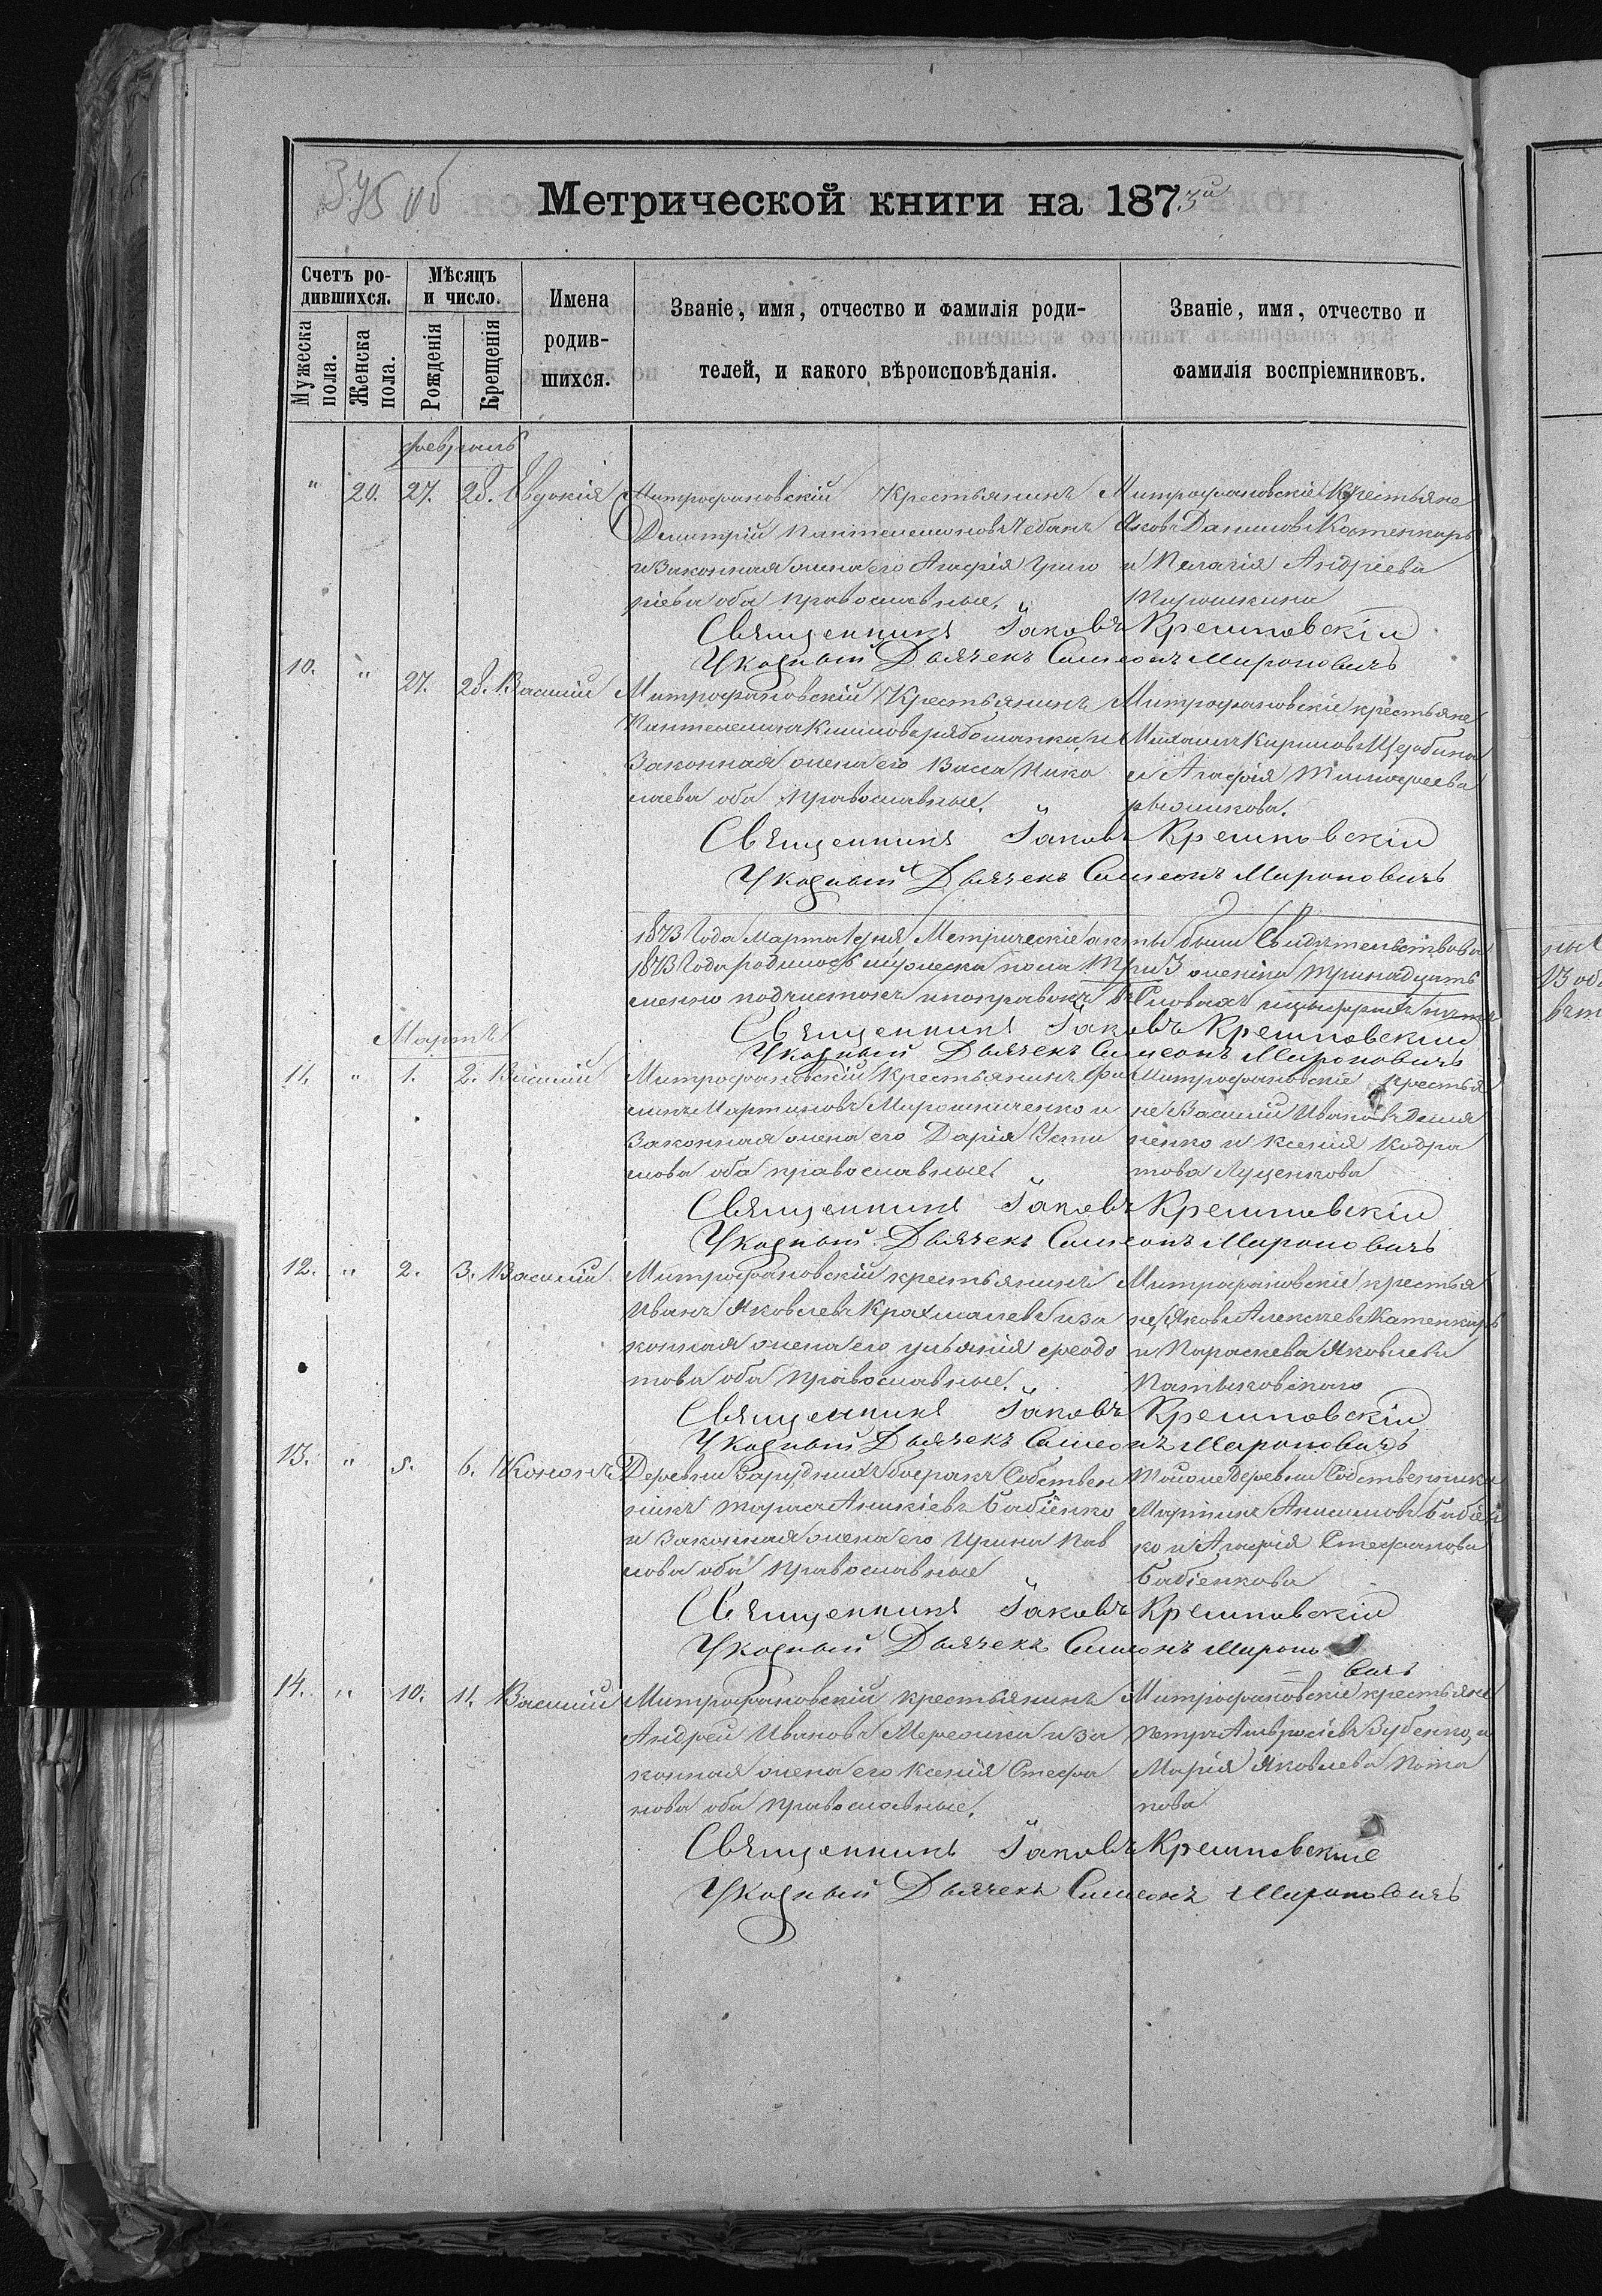 395 об
Метрической книги на 1873й
Счетъ ро-
дившихся.
Мѣсяцъ
и число.
Мужеска
пола.
Женска
пола.
Рожденія
Крещенія
Имена
родив-
шихся.
Званіе, имя, отчество и фамилія роди-
телей, и какого вѣроисповѣданія.
Званіе, имя, отчество и
фамилія воспріемниковъ.
февраль
" 20. 27. 28. Евдокія
Митрофановскій Крестьянинъ
Димитрій Пантелеимоновъ Чебанъ
и Законная жена его Агафія Григо
ріева оба православные.
Митрофановскіе Крестьяне
Яковъ Даниловъ Котенкаръ
и Пелагія Андріева
Мирошкина
Священникъ Іаковъ Крешновскій
Указный Дьячекъ Симеонъ Мироновичъ
10. " 27. 28. Василій
Митрофановскій Крестьянинъ
Пантелеимонъ Климовъ рябошапка и
Законная жена его Васса Нико
лаева оба православные.
Митрофановскіе крестьяне
Михаилъ Кириловъ
и Агафія Тимофеева
рыжикова.
Священникъ Іаковъ Крешновскій
Указный Дьячекъ Симеонъ Мироновичъ
1873 Года Марта 1 дня Метрическіе акты были Свидетельствова
1873 Года родилось мужеска пола Три 3 женска тринадцать
подчистокъ и поправокъ въ Словахъ и цыфрахъ нѣтъ
Священникъ Іаковъ Крешновский
Указный Дьячекъ Симеонъ Мироновичъ
Мартъ
11. " 1. 2. Василій
Митрофановскій Крестьянинъ Фи
липъ Мартиновъ Мирошниченко и
Законная жена его Дарія Усти
нова оба православные.
Митрофановскіе крестья
не Василій Ивановъ Демя
ненко и Ксенія Кодра
това Луценкова
Священникъ Іаковъ Крешновскій
Указный Дьячекъ Симеонъ Мироновичъ
12. " 2. 3. Василій
Митрофановскій крестьянинъ
Иванъ Яковлевъ Крахмалевъ и за
конная жена его ульянія феодо
това оба православные.
Митрофановскіе крестья
не, Яковъ Алексеевъ Катенкаръ
и Параскева Яковлева
Священникъ Іаковъ Крешновскій
Указный Дьячекъ Симеонъ Мироновичъ
13. " 5. 6. Кононъ
Деревни Зарудныхъ боеракъ Собствен
никъ тарасъ Аникіевъ Бабіенко
и Законная жена его Ирина Пав
лова оба православные
Тойже Деревни Собственники
Мартинъ Анисимовъ Бабіен
ко и Агафія Стефанова
Бабіенкова
Священникъ Іаковъ Крешновскій
Указный Дьячекъ Симеонъ Мироно
вичъ
14. " 10. 11. Василій
Митрофановскій крестьянинъ
Андрей Ивановъ Мережка и за
конная жена его Ксенія Стефа
нова оба православные.
Митрофановскіе крестьяне
петръ Амвросіевъ Зубенко, и
Марія Яковлева Пота
пова
Священникъ Іаковъ Крешновские
Указный Дьячекъ Симеонъ Мироновичъ